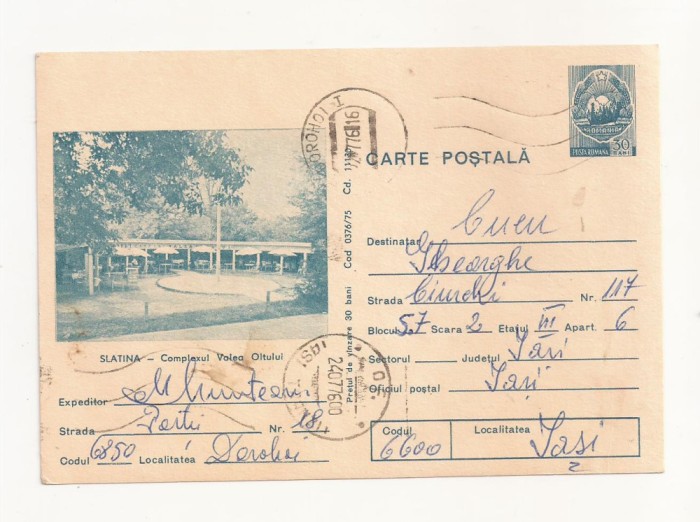 DOROHOI - 1
CARTE POȘTALĂ
POSTA ROMANA 30 BANI
SLATINA – Complexul Valea Oltului
Expeditor Munteanu
Strada Nr. 18
Codul 6850 Localitatea Dorohoi
Prețul de vînzare 30 bani Cod 0376/75 Cd.
IAȘI
24077600
Destinatar Cucu
Gheorghe
Strada Ciurchi Nr. 117
Blocul 57 Scara 2 Etajul III Apart. 6
Sectorul Județul Iași
Oficiul poștal Iași
Codul 6600 Localitatea Iasi